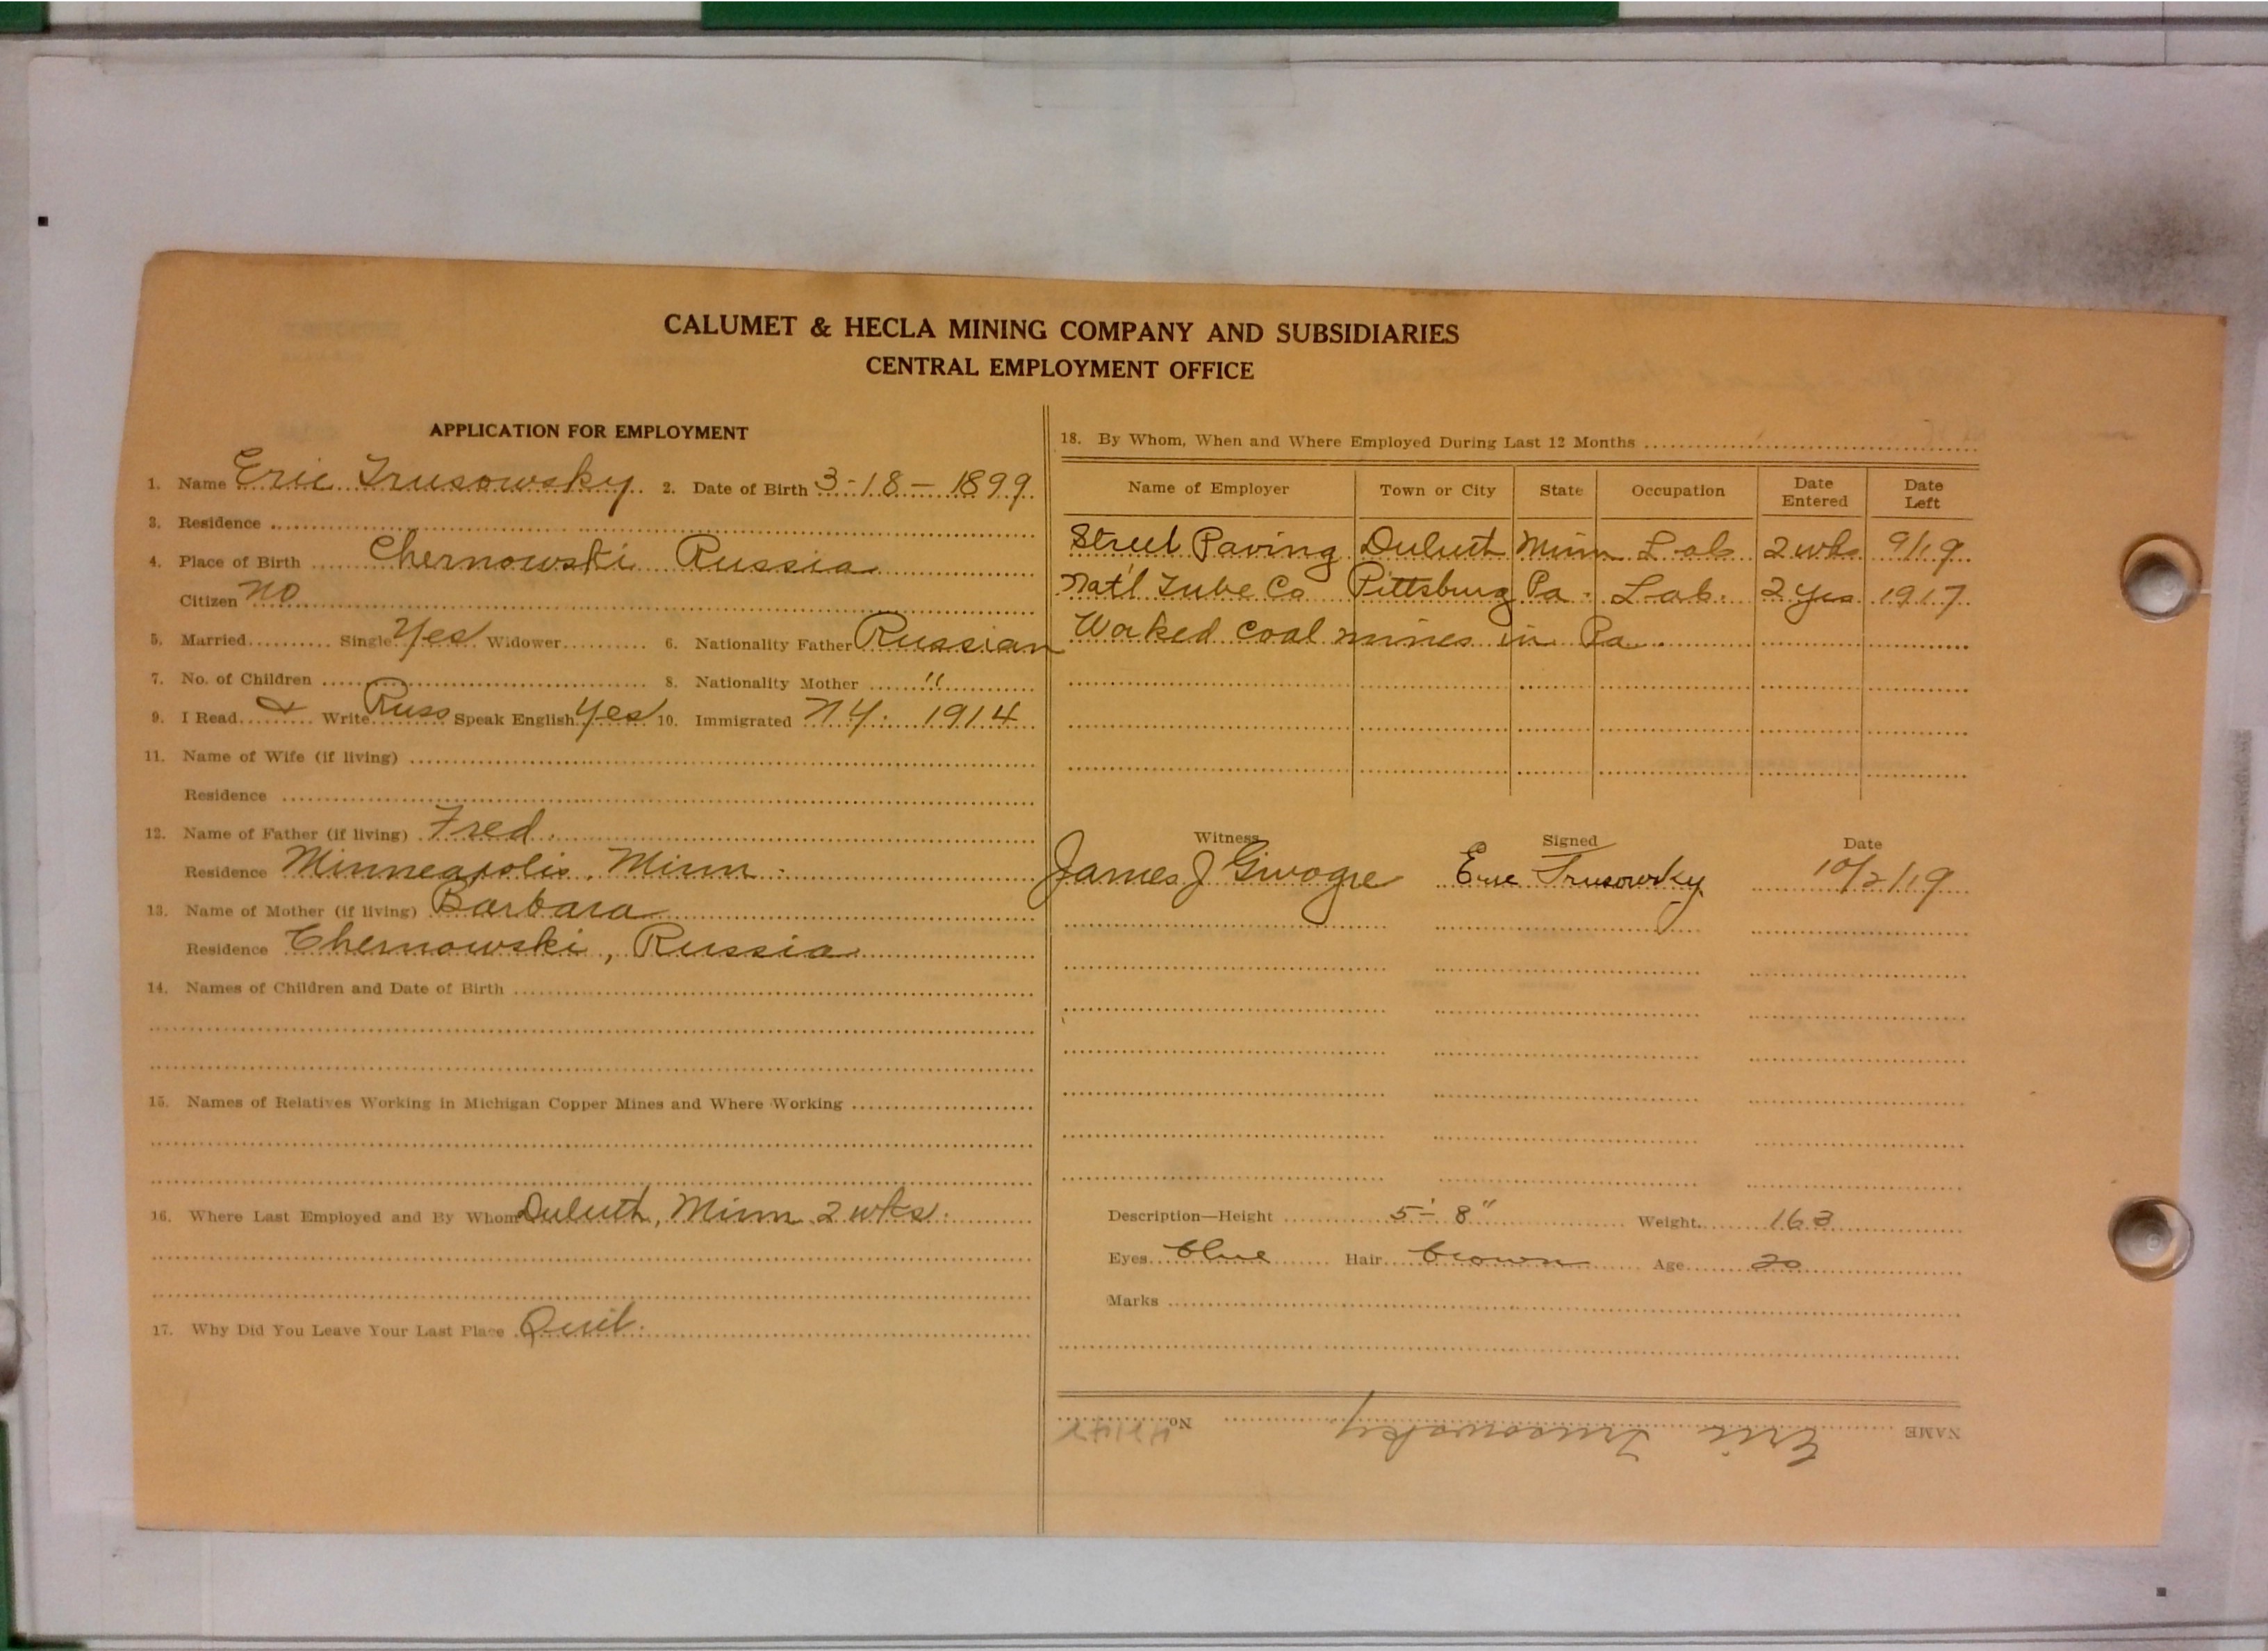 CALUMET & HECLA MINING COMPANY AND SUBSIDIARIES
CENTRAL EMPLOYMENT OFFICE
APPLICATION FOR EMPLOYMENT
1. Name Eric Trusowsky 2. Date of Birth 3-18-1899
3. Residence
4. Place of Birth Chernowski Russia
Citizen no
5. Married Single Yes Widower 6. Nationality Father Russian
7. No. of Children 8. Nationality Mother "
9. I Read & Write Russ Speak English Yes 10. Immigrated N.Y. 1914
11. Name of Wife (if living)
Residence
12. Name of Father (if living) Fred.
Residence Minneapolis, Minn.
13. Name of Mother (if living) Barbara
Residence Chernowski, Russia
14. Names of Children and Date of Birth
15. Names of Relatives Working in Michigan Copper Mines and Where Working
16. Where Last Employed and By Whom Duluth, Minn. 2 wks.
17. Why Did You Leave Your Last Place Quit.
18. By Whom, When and Where Employed During Last 12 Months
Name of Employer Town or City State Occupation Date Entered Date Left
Street Paving Duluth Minn Lab 2 wks 9/19
Nat'l Tube Co Pittsburg Pa. Lab. 2 Yrs 1917
Worked coal mines in Pa.
Witness Signed Date
James J Eric Trusowsky 10/2/19
Description—Height 5'-8" Weight 163
Eyes blue Hair brown Age 20
Marks
NAME Eric Trusowsky No.